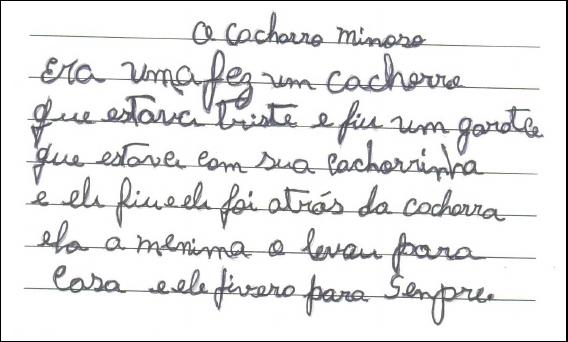 O cachorro minoso
Era uma fez um cachorro
que estava triste e fiu um garota
que estava com sua cachorrinha
e ele fiu e ele foi atrás da cachorra
ela a menima o levau para
casa e ele fivero para senpre.